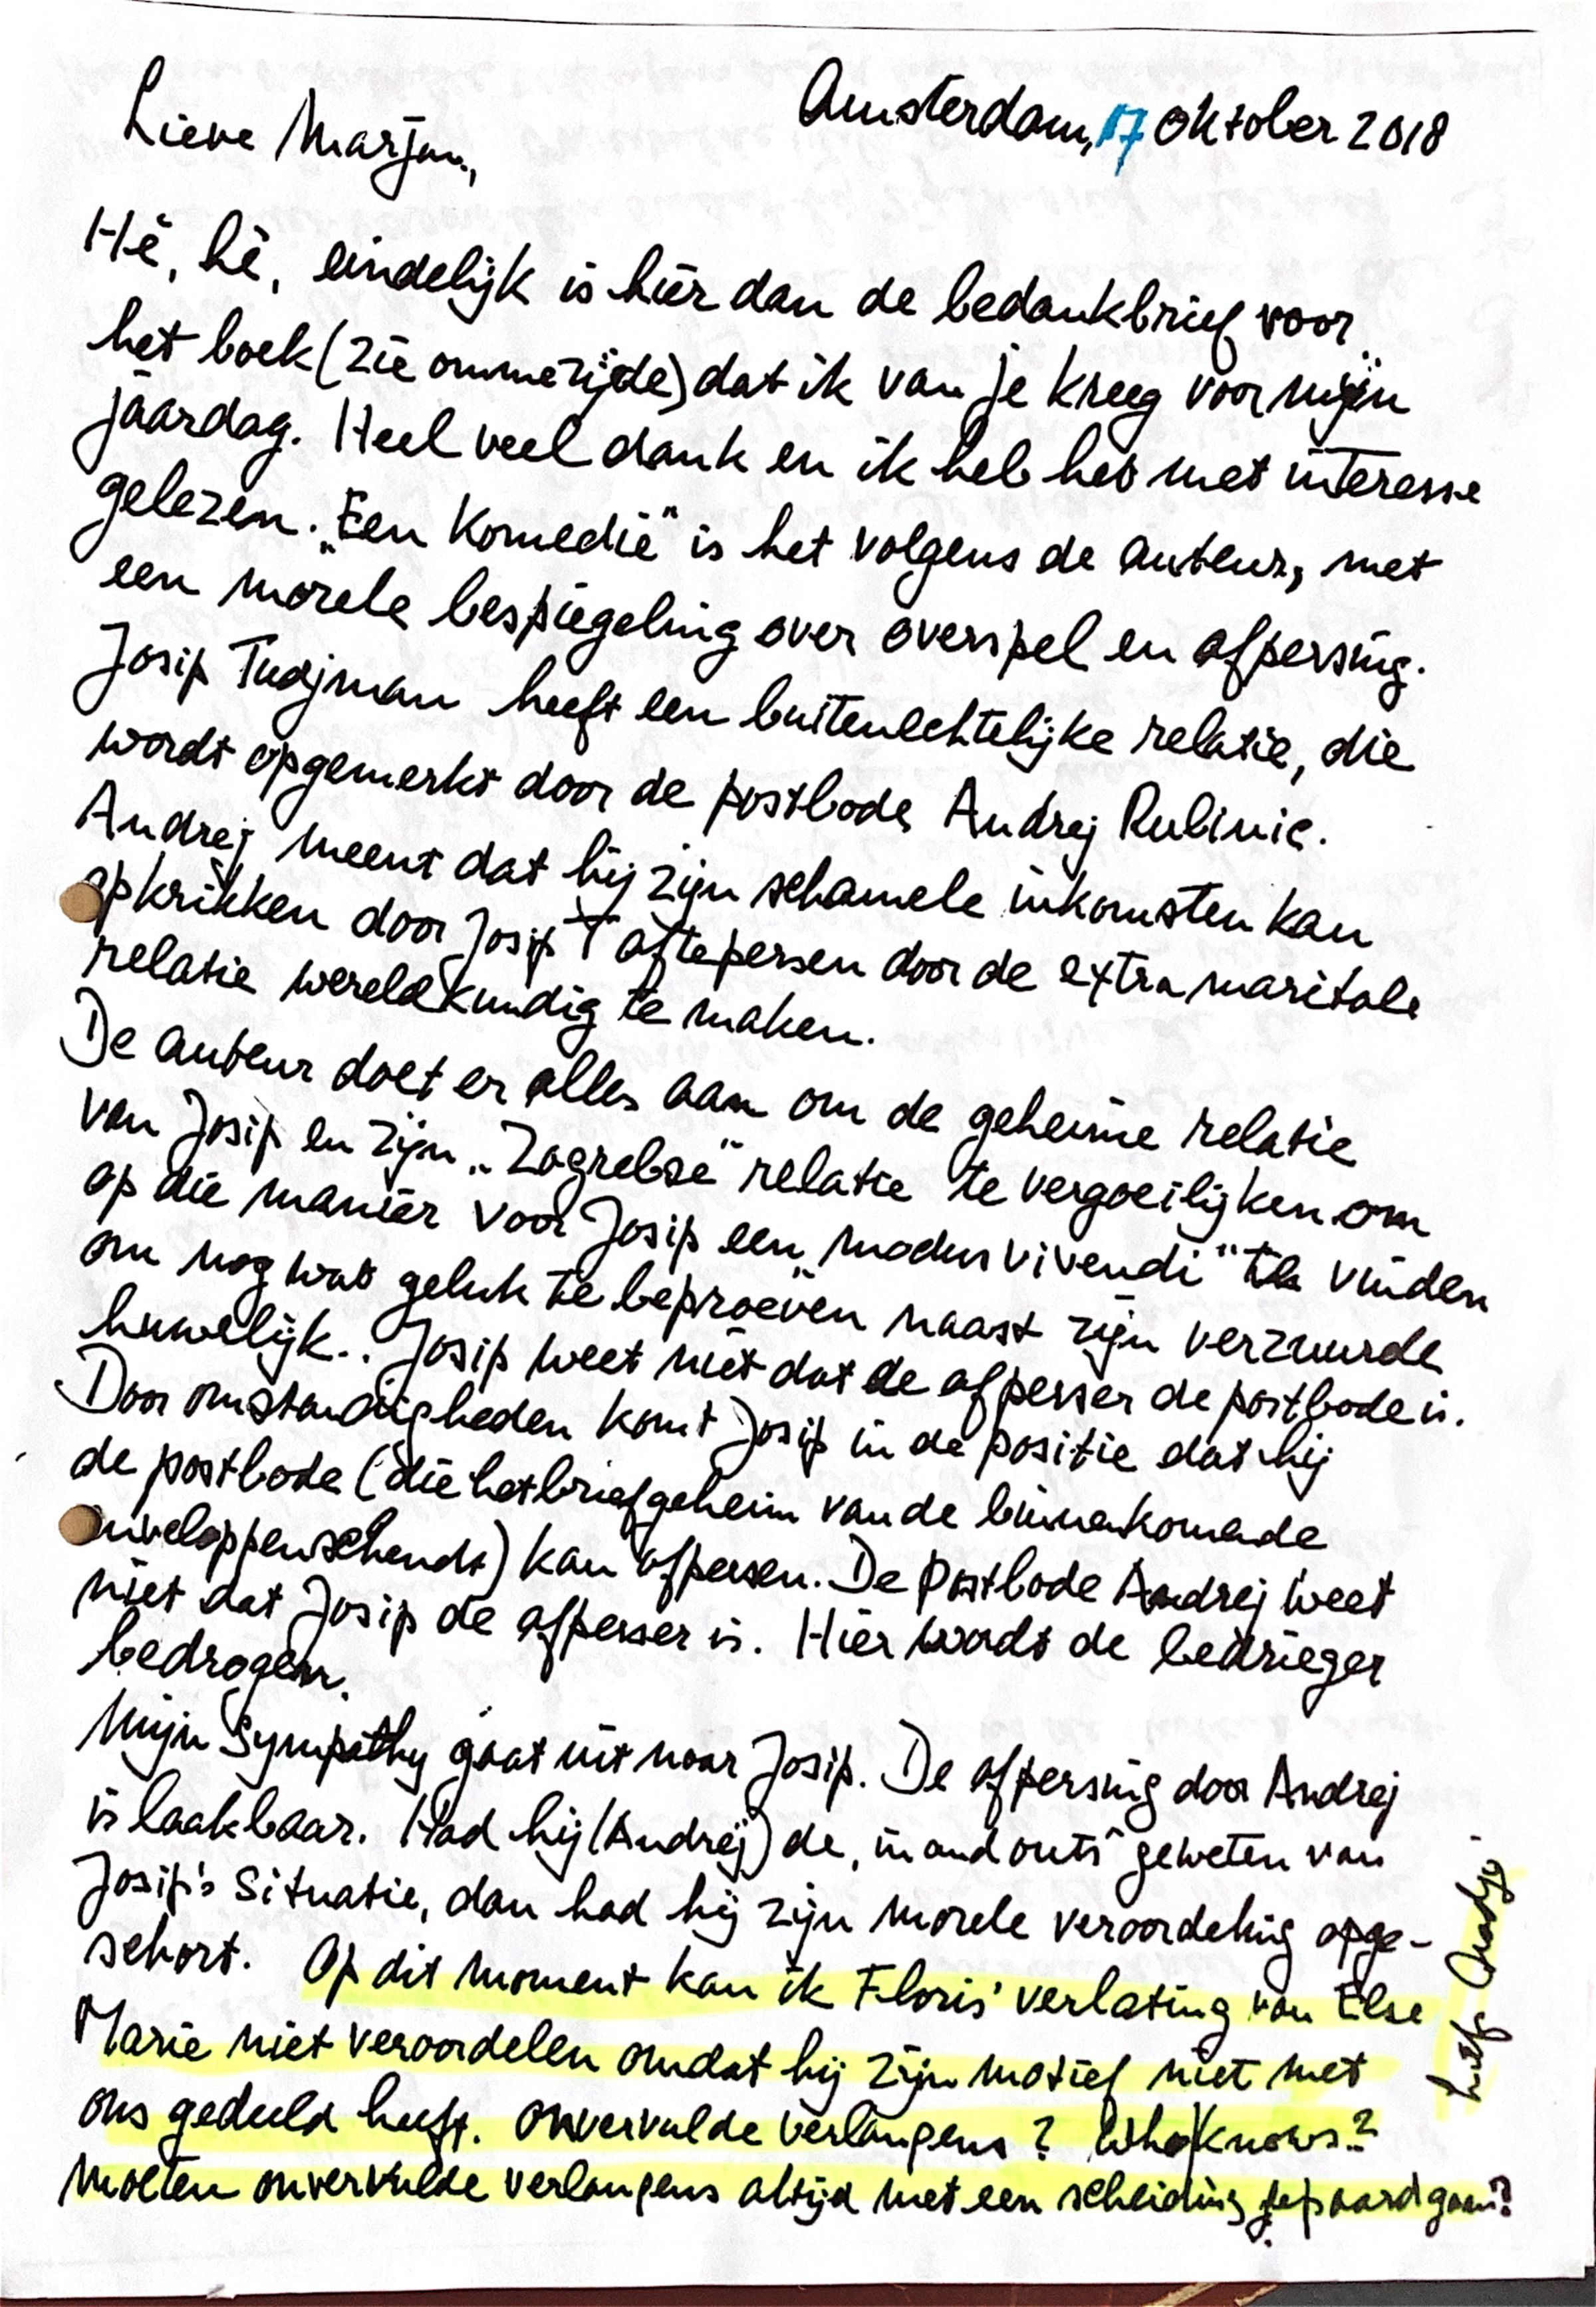 Amsterdam, 17 oktober 2018
Lieve Marjan,
Hè, hè, eindelijk is hier dan de bedankbrief voor
het boek (zie ommezijde) dat ik van je kreeg voor mijn
jaardag. Heel veel dank en ik heb het met interesse
gelezen. „Een Komedie" is het volgens de auteur, met
een morele bespiegeling over overspel en afpersing.
Josip Tudjman heeft een buitenechtelijke relatie, die
wordt opgemerkt door de postbode Andrej Rubinic.
Andrej meent dat hij zijn schamele inkomsten kan
opkrikken door Josip T af te persen door de extra maritale
relatie wereldkundig te maken.
De auteur doet er alles aan om de geheime relatie
van Josip en zijn „Zagrebse" relatie te vergoeilijken om
op die manier voor Josip een „modus vivendi" te vinden
om nog wat geluk te beproeven naast zijn verzuurde
huwelijk.. Josip weet niet dat de afperser de postbode is.
Door omstandigheden komt Josip in de positie dat hij
de postbode (die het briefgeheim van de binnenkomende
enveloppen schendt) kan afpersen. De postbode Andrej weet
niet dat Josip de afperser is. Hier wordt de bedrieger
bedrogen.
Mijn Sympathy gaat uit naar Josip. De afpersing door Andrej
is laakbaar. Had hij (Andrej) de „in and outs" geweten van
Josip's situatie, dan had hij zijn morele veroordeling opge-
schort. Op dit moment kan ik Floris' verlating van Else
Marie niet veroordelen omdat hij zijn motief niet met
ons gedeeld heeft. Onvervulde verlangens? Who knows?
Moeten onvervulde verlangens altijd met een scheiding gepaard gaan?
liefs